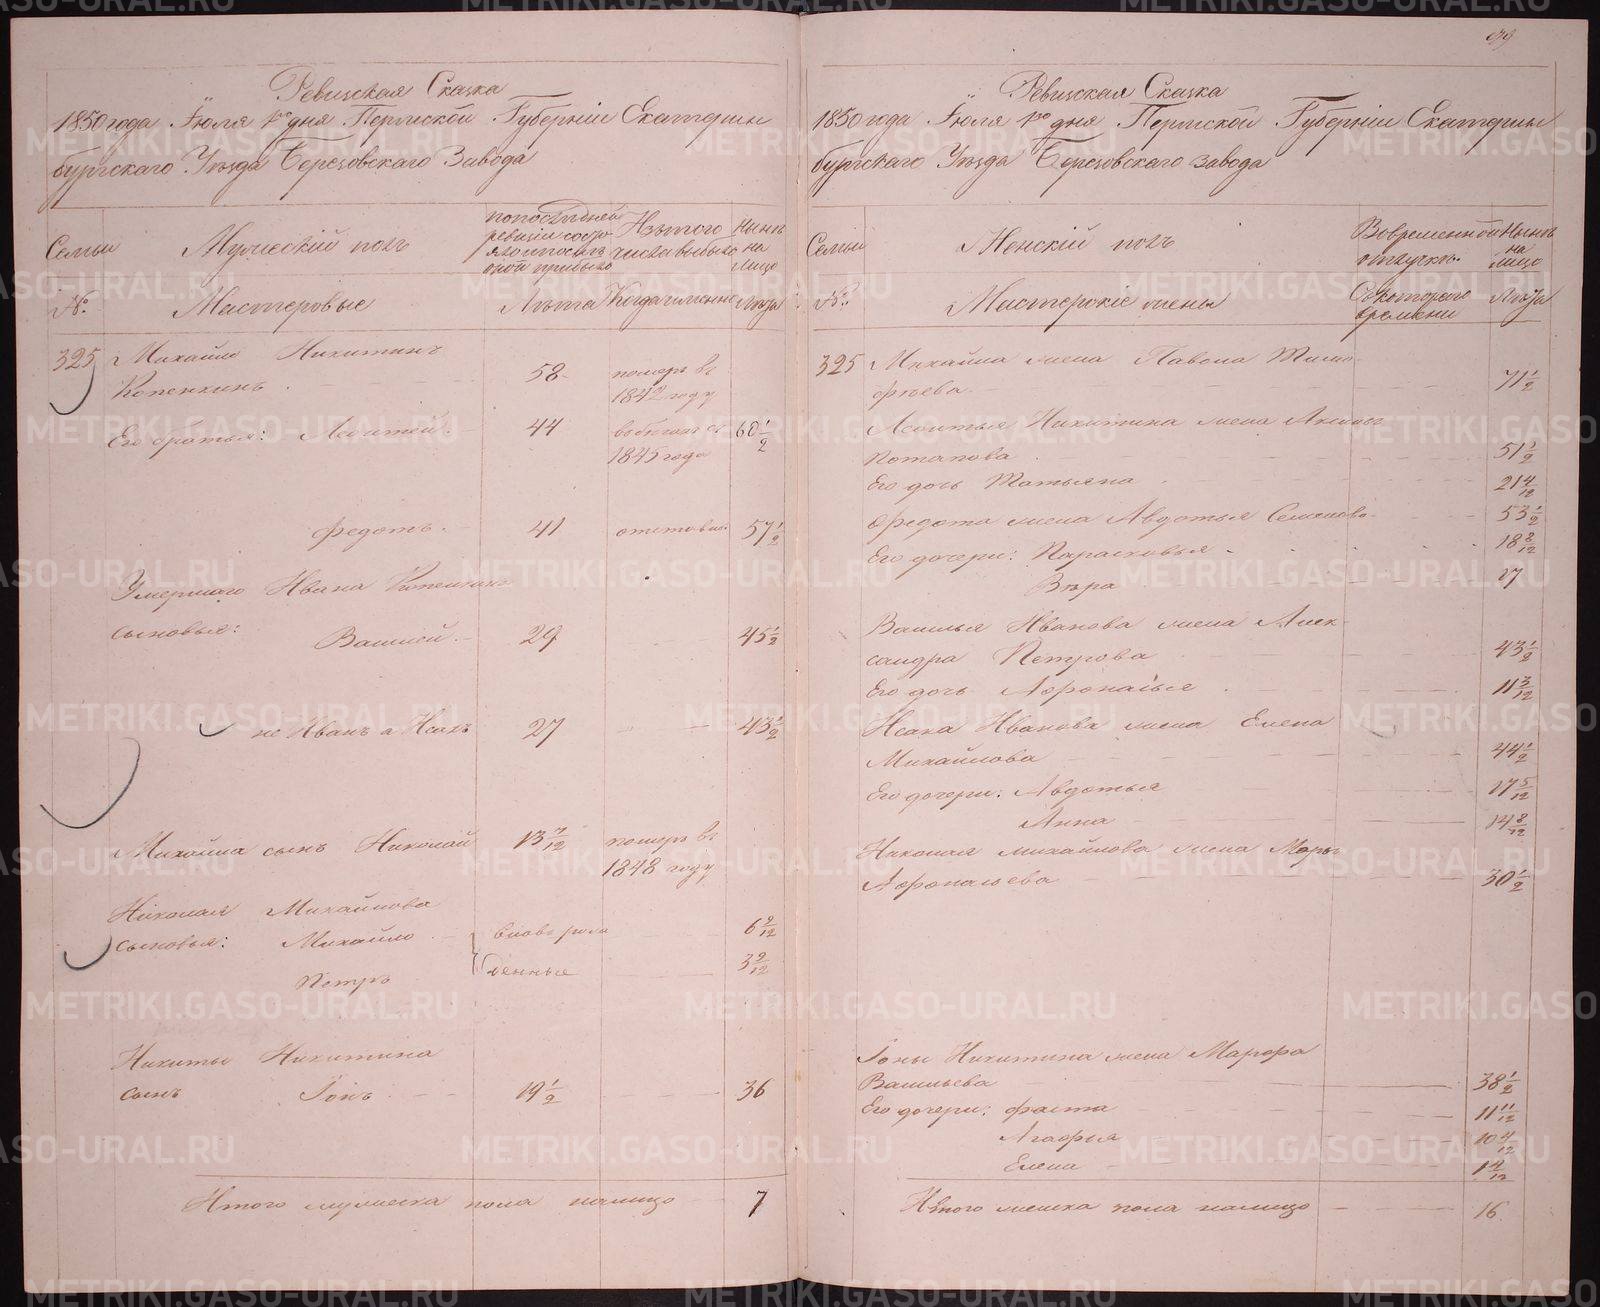 Ревизская Сказка
1850 года Іюля 1го дня Пермской Губерніи Екатерин
бургскаго Уѣзда Березовскаго Завода
Семьи
Мужескій полъ
по последней
ревизіи состо
яло и после
оной прибыло
Изъ того
числа выбыло
Нынѣ
на
лицо
№.
Мастеровые
Лѣта
Когда именно
Лѣта
325
Михайло Никитинъ
Копенкинъ
58
померъ въ
1842 году
Его братья:
44
въ бегахъ съ
1845 года
60 1/2
Федотъ
41
57 1/2
Умершаго Ивана Копенкина
сыновья: Василей
29
45 1/2
не Иванъ а Исакъ
27
43 1/2
Михайла сынъ Николай
13 7/12
померъ въ
1848 году
Николая Михайлова
сыновья: Михайло
вновь рож
6 9/12
Петръ
денные
3 9/12
Никиты Никитина
сынъ Іонъ
19 1/2
36
Итого мужеска пола налицо
7
79
Ревизская Сказка
1850 года Іюля 1го дня Пермской Губерніи Екатерин
бургскаго Уѣзда Березовскаго завода
Семьи
Женскій полъ
Во временной
отлучкѣ
Нынѣ
на
лицо
№.
Мастерскіе жены
Съ котораго
времени
Лѣта
325
Михайла жена Павола Тимо-
фѣева
71 1/2
Никитина жена
Потапова
51 1/2
Его дочь Татьяна
21 4/12
Федота жена Авдотья Семенова
53 1/2
Его дочери: Парасковья
18 8/12
Вѣра
17
Василья Иванова жена Алек-
сандра Петрова
43 1/2
Его дочь Афонасья
11 3/12
Исака Иванова жена Елена
Михайлова
44 1/2
Его дочери: Авдотья
17 5/12
Анна
14 8/12
Николая михайлова жена Марья
Афонасьева
30 1/2
Іоны Никитина жена Марфа
Васильева
38 1/2
Его дочери:
11 11/12
Агафья
10 4/12
Елена
1 4/12
Итого женска пола налицо
16
METRIKI.GASO-URAL.RU